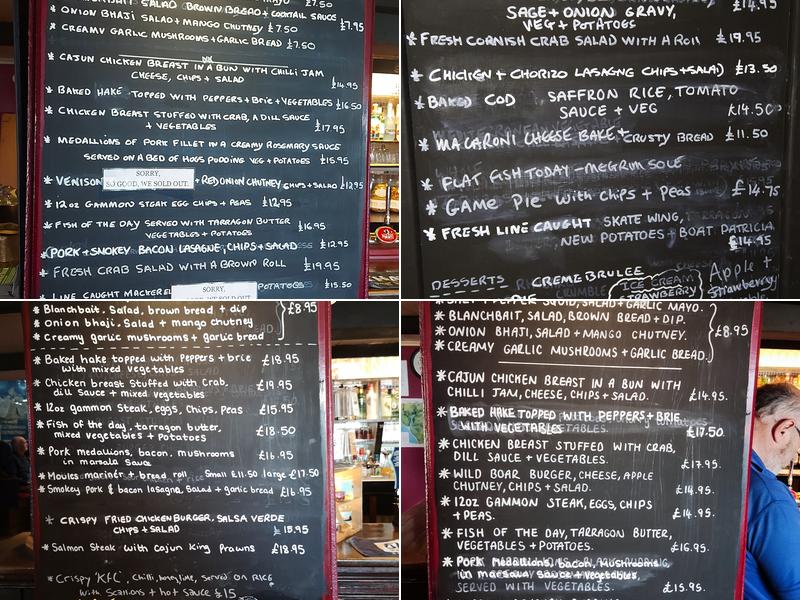 SALAD BROWN BREAD + COCKTAIL SAUCE £7.95
* ONION BHAJI SALAD + MANGO CHUTNEY £7.50
* CREAMY GARLIC MUSHROOMS + GARLIC BREAD £7.50
* CAJUN CHICKEN BREAST IN A BUN WITH CHILLI JAM
CHEESE, CHIPS + SALAD £14.95
* BAKED HAKE TOPPED WITH PEPPERS + BRIE + VEGETABLES £16.50
* CHICKEN BREAST STUFFED WITH CRAB, A DILL SAUCE
+ VEGETABLES £17.95
* MEDALLIONS OF PORK FILLET IN A CREAMY ROSEMARY SAUCE
SERVED ON A BED OF HOGS PUDDING VEG + POTATOES £15.95
SORRY,
* VENISON SO GOOD, WE SOLD OUT. + RED ONION CHUTNEY CHIPS + SALAD £12.95
* 12 OZ GAMMON STEAK EGG CHIPS + PEAS £12.95
* FISH OF THE DAY SERVED WITH TARRAGON BUTTER
VEGETABLES + POTATOES £16.95
* PORK + SMOKEY BACON LASAGNE, CHIPS + SALAD £12.95
* FRESH CRAB SALAD WITH A BROWN ROLL £19.95
LINE CAUGHT MACKEREL POTATOES £15.50
£14.95
SAGE + ONION GRAVY,
VEG + POTATOES
* FRESH CORNISH CRAB SALAD WITH A ROLL £19.95
* CHICKEN + CHORIZO LASAGNE CHIPS + SALAD £13.50
* BAKED COD SAFFRON RICE, TOMATO
SAUCE + VEG £14.50
* MACARONI CHEESE BAKE + CRUSTY BREAD £11.50
* FLAT FISH TODAY - MEGRIM SOLE
* GAME PIE WITH CHIPS + PEAS £14.75
* FRESH LINE CAUGHT SKATE WING,
NEW POTATOES + BOAT PATRICIA
£14.95
DESSERTS CREME BRULEE
ICE CREAM
STRAWBERRY
Apple +
Strawberry
* Blanchbait. Salad, brown bread + dip
* Onion bhaji. Salad + mango chutney £8.95
* Creamy garlic mushrooms + garlic bread
* Baked hake topped with Peppers + brie £18.95
with mixed vegetables
* Chicken breast Stuffed with Crab, £19.95
dill Sauce + mixed vegetables
* 12oz gammon steak, eggs, Chips, Peas £15.95
* Fish of the day, tarragon butter, £18.50
mixed vegetables + Potatoes
* Pork medallions, bacon, mushrooms £16.95
in marsala Sauce
* Moules mariner + bread roll Small £11.50 large £17.50
* Smokey Pork & bacon lasagna, Salad + garlic bread £16.95
* CRISPY FRIED CHICKEN BURGER, SALSA VERDE
CHIPS + SALAD £15.95
* Salmon Steak with Cajun King Prawns £18.95
* Crispy 'KFC', Chilli, honey, lime, Served on RICE
with Scallions + hot Sauce £15
SALT + PEPPER SQUID, SALAD + GARLIC MAYO.
* BLANCHBAIT, SALAD, BROWN BREAD + DIP.
* ONION BHAJI, SALAD + MANGO CHUTNEY. £8.95
* CREAMY GARLIC MUSHROOMS + GARLIC BREAD.
* CAJUN CHICKEN BREAST IN A BUN WITH
CHILLI JAM, CHEESE, CHIPS + SALAD. £14.95.
* BAKED HAKE TOPPED WITH PEPPERS + BRIE
WITH VEGETABLES £17.50
* CHICKEN BREAST STUFFED WITH CRAB,
DILL SAUCE + VEGETABLES. £17.95.
* WILD BOAR BURGER, CHEESE, APPLE
CHUTNEY, CHIPS + SALAD. £14.95.
* 12OZ GAMMON STEAK, EGGS, CHIPS
+ PEAS. £14.95.
* FISH OF THE DAY, TARRAGON BUTTER,
VEGETABLES + POTATOES. £16.95.
* Pork Medallions, bacon, mushrooms
in marsala Sauce + vegetables,
SERVED WITH VEGETABLES. £15.95.